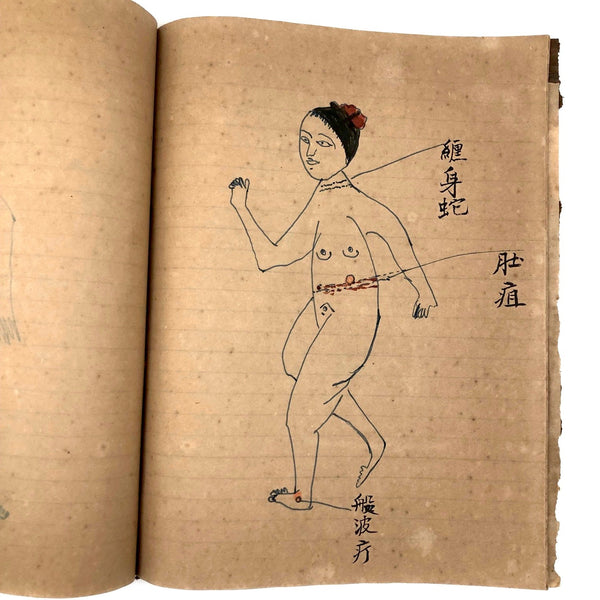 纏身蛇
肚疽
般波疔